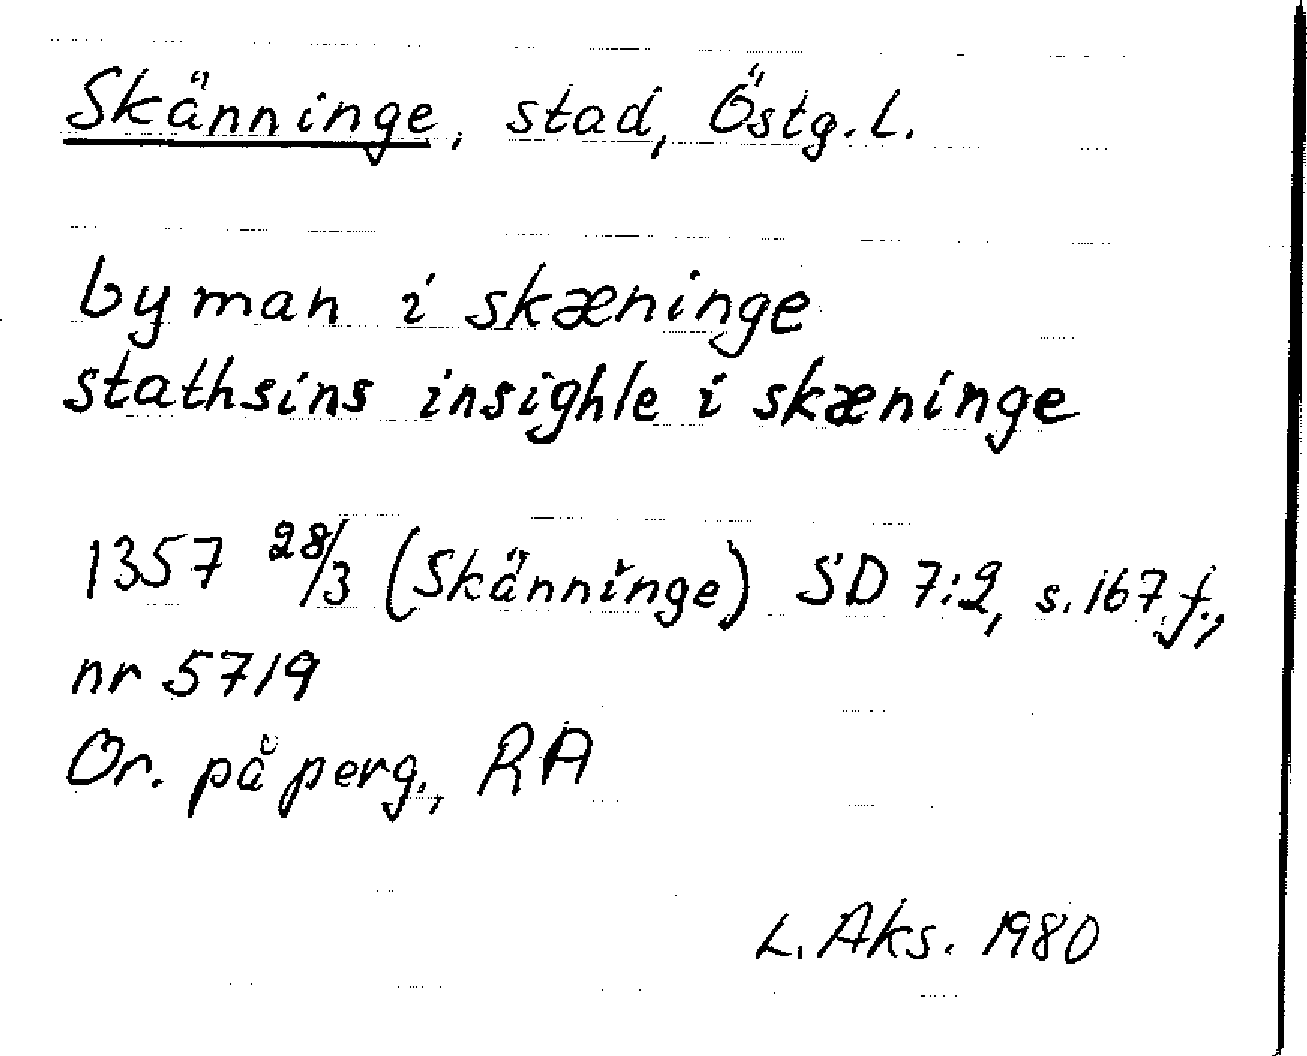 Skänninge, stad, Östg. L.
byman i skæninge
stathsins insighle i skæninge
1357 28/3 (Skänninge) SD 7:2, s. 167 f.,
nr 5719
Or. på perg., RA
L. Aks. 1980